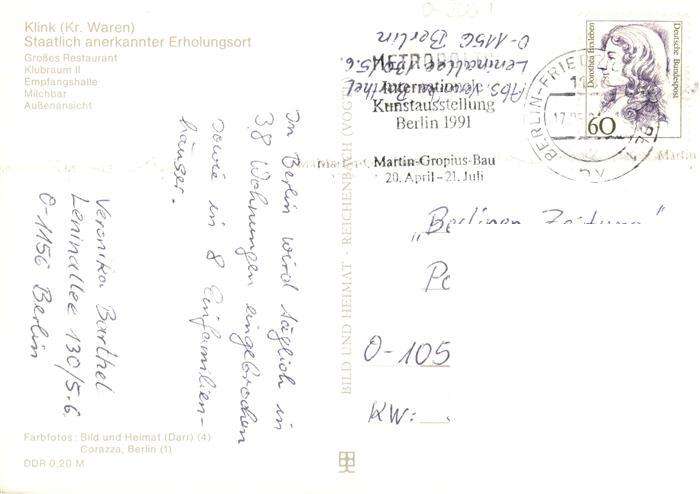 Klink (Kr. Waren)
Staatlich anerkannter Erholungsort
Großes Restaurant
Klubraum II
Empfangshalle
Milchbar
Außenansicht
In Berlin wird täglich in
38 Wohnungen eingebrochen
sowie in 8 Einfamilien-
häuser.
Veronika Barthel
Leninallee 130/5.6.
O-1156 Berlin
Farbfotos: Bild und Heimat (Darr) (4)
Corazza, Berlin (1)
DDR 0,20 M
BILD UND HEIMAT · REICHENBACH (VOGTL)
Abs. Veronika Barthel
Leninallee 130/5.6.
O-1156 Berlin
METROPOLIS
Internationale
Kunstausstellung
Berlin 1991
Martin-Gropius-Bau
20. April – 21. Juli
Martin
BERLIN-FRIED
Dorothea Erxleben
Deutsche Bundespost
60
„Berliner Zeitung"
O-105
KW: